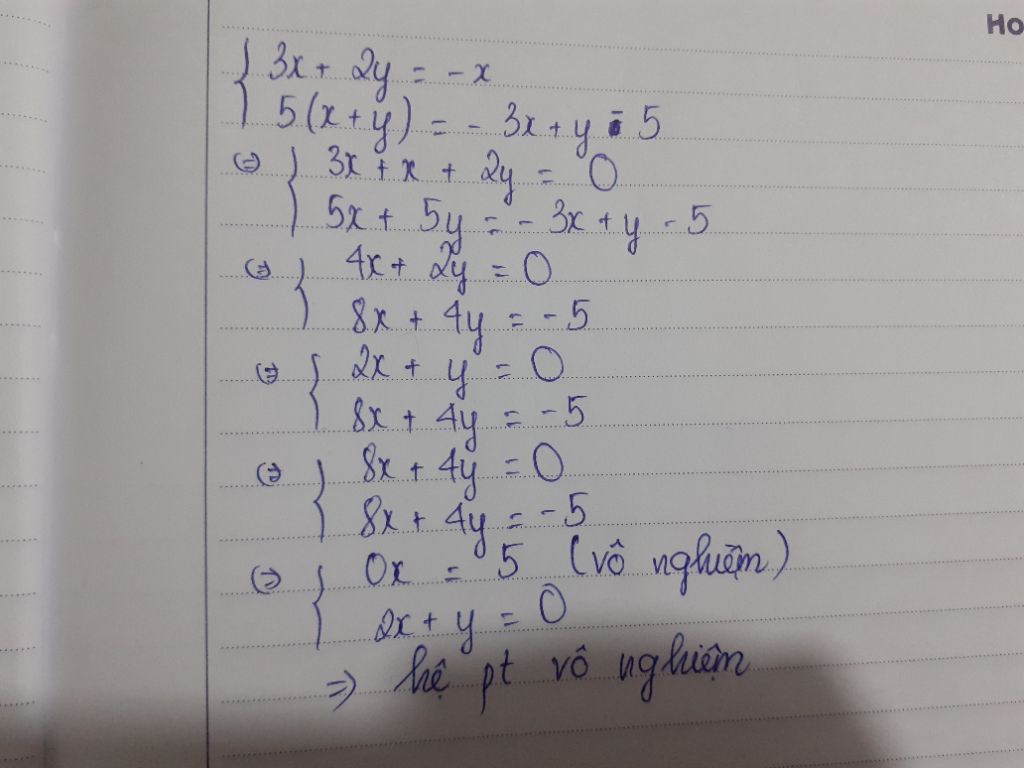 Ho
{ 3x + 2y = -x
5(x + y) = - 3x + y - 5
(=) { 3x + x + 2y = 0
5x + 5y = - 3x + y - 5
(=) { 4x + 2y = 0
8x + 4y = - 5
(=) { 2x + y = 0
8x + 4y = - 5
(=) { 8x + 4y = 0
8x + 4y = - 5
(=) { 0x = 5 (vô nghiệm)
2x + y = 0
=> hệ pt vô nghiệm